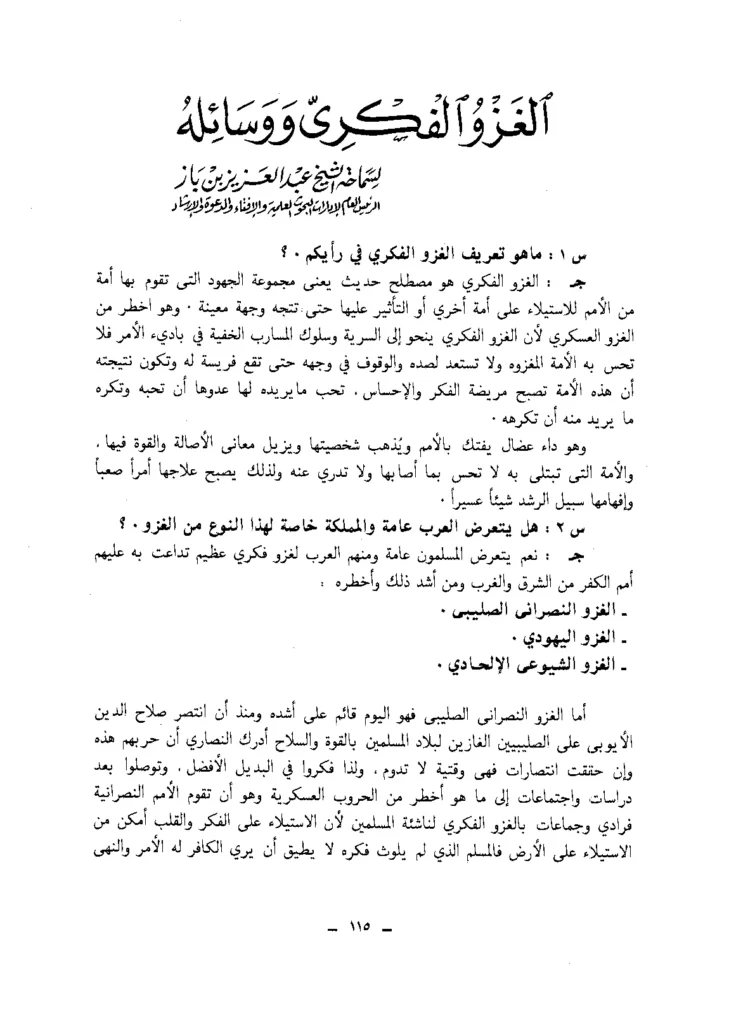 الغَزْوُ الفِكْرِيّ وَوَسَائِلهُ
لسماحة الشيخ عبد العزيز بن باز
الرئيس العام لإدارات البحوث العلمية والإفتاء والدعوة والإرشاد
س ١ : ماهو تعريف الغزو الفكري في رأيكم ٠ ؟
جـ : الغزو الفكري هو مصطلح حديث يعنى مجموعة الجهود التى تقوم بها أمة
من الأمم للاستيلاء على أمة أخري أو التأثير عليها حتى تتجه وجهة معينة ٠ وهو اخطر من
الغزو العسكري لأن الغزو الفكري ينحو إلى السرية وسلوك المسارب الخفية في باديء الأمر فلا
تحس به الأمة المغزوه ولا تستعد لصده والوقوف في وجهه حتى تقع فريسة له وتكون نتيجته
أن هذه الأمة تصبح مريضة الفكر والإحساس ، تحب مايريده لها عدوها أن تحبه وتكره
ما يريد منه أن تكرهه ٠
وهو داء عضال يفتك بالأمم ويُذهب شخصيتها ويزيل معانى الأصالة والقوة فيها ،
والأمة التى تبتلى به لا تحس بما أصابها ولا تدري عنه ولذلك يصبح علاجها أمراً صعباً
وإفهامها سبيل الرشد شيئاً عسيراً ٠
س ٢ : هل يتعرض العرب عامة والمملكة خاصة لهذا النوع من الغزو ٠ ؟
جـ : نعم يتعرض المسلمون عامة ومنهم العرب لغزو فكري عظيم تداعت به عليهم
أمم الكفر من الشرق والغرب ومن أشد ذلك وأخطره :
ـ الغزو النصرانى الصليبى ٠
ـ الغزو اليهودي ٠
ـ الغزو الشيوعى الإلحادي ٠
أما الغزو النصرانى الصليبى فهو اليوم قائم على أشده ومنذ أن انتصر صلاح الدين
الأيوبى على الصليبيين الغازين لبلاد المسلمين بالقوة والسلاح أدرك النصاري أن حربهم هذه
وإن حققت انتصارات فهى وقتية لا تدوم ، ولذا فكروا في البديل الأفضل ، وتوصلوا بعد
دراسات واجتماعات إلى ما هو أخطر من الحروب العسكرية وهو أن تقوم الأمم النصرانية
فرادي وجماعات بالغزو الفكري لناشئة المسلمين لأن الاستيلاء على الفكر والقلب أمكن من
الاستيلاء على الأرض فالمسلم الذي لم يلوث فكره لا يطيق أن يري الكافر له الأمر والنهى
ـ ١١٥ ـ